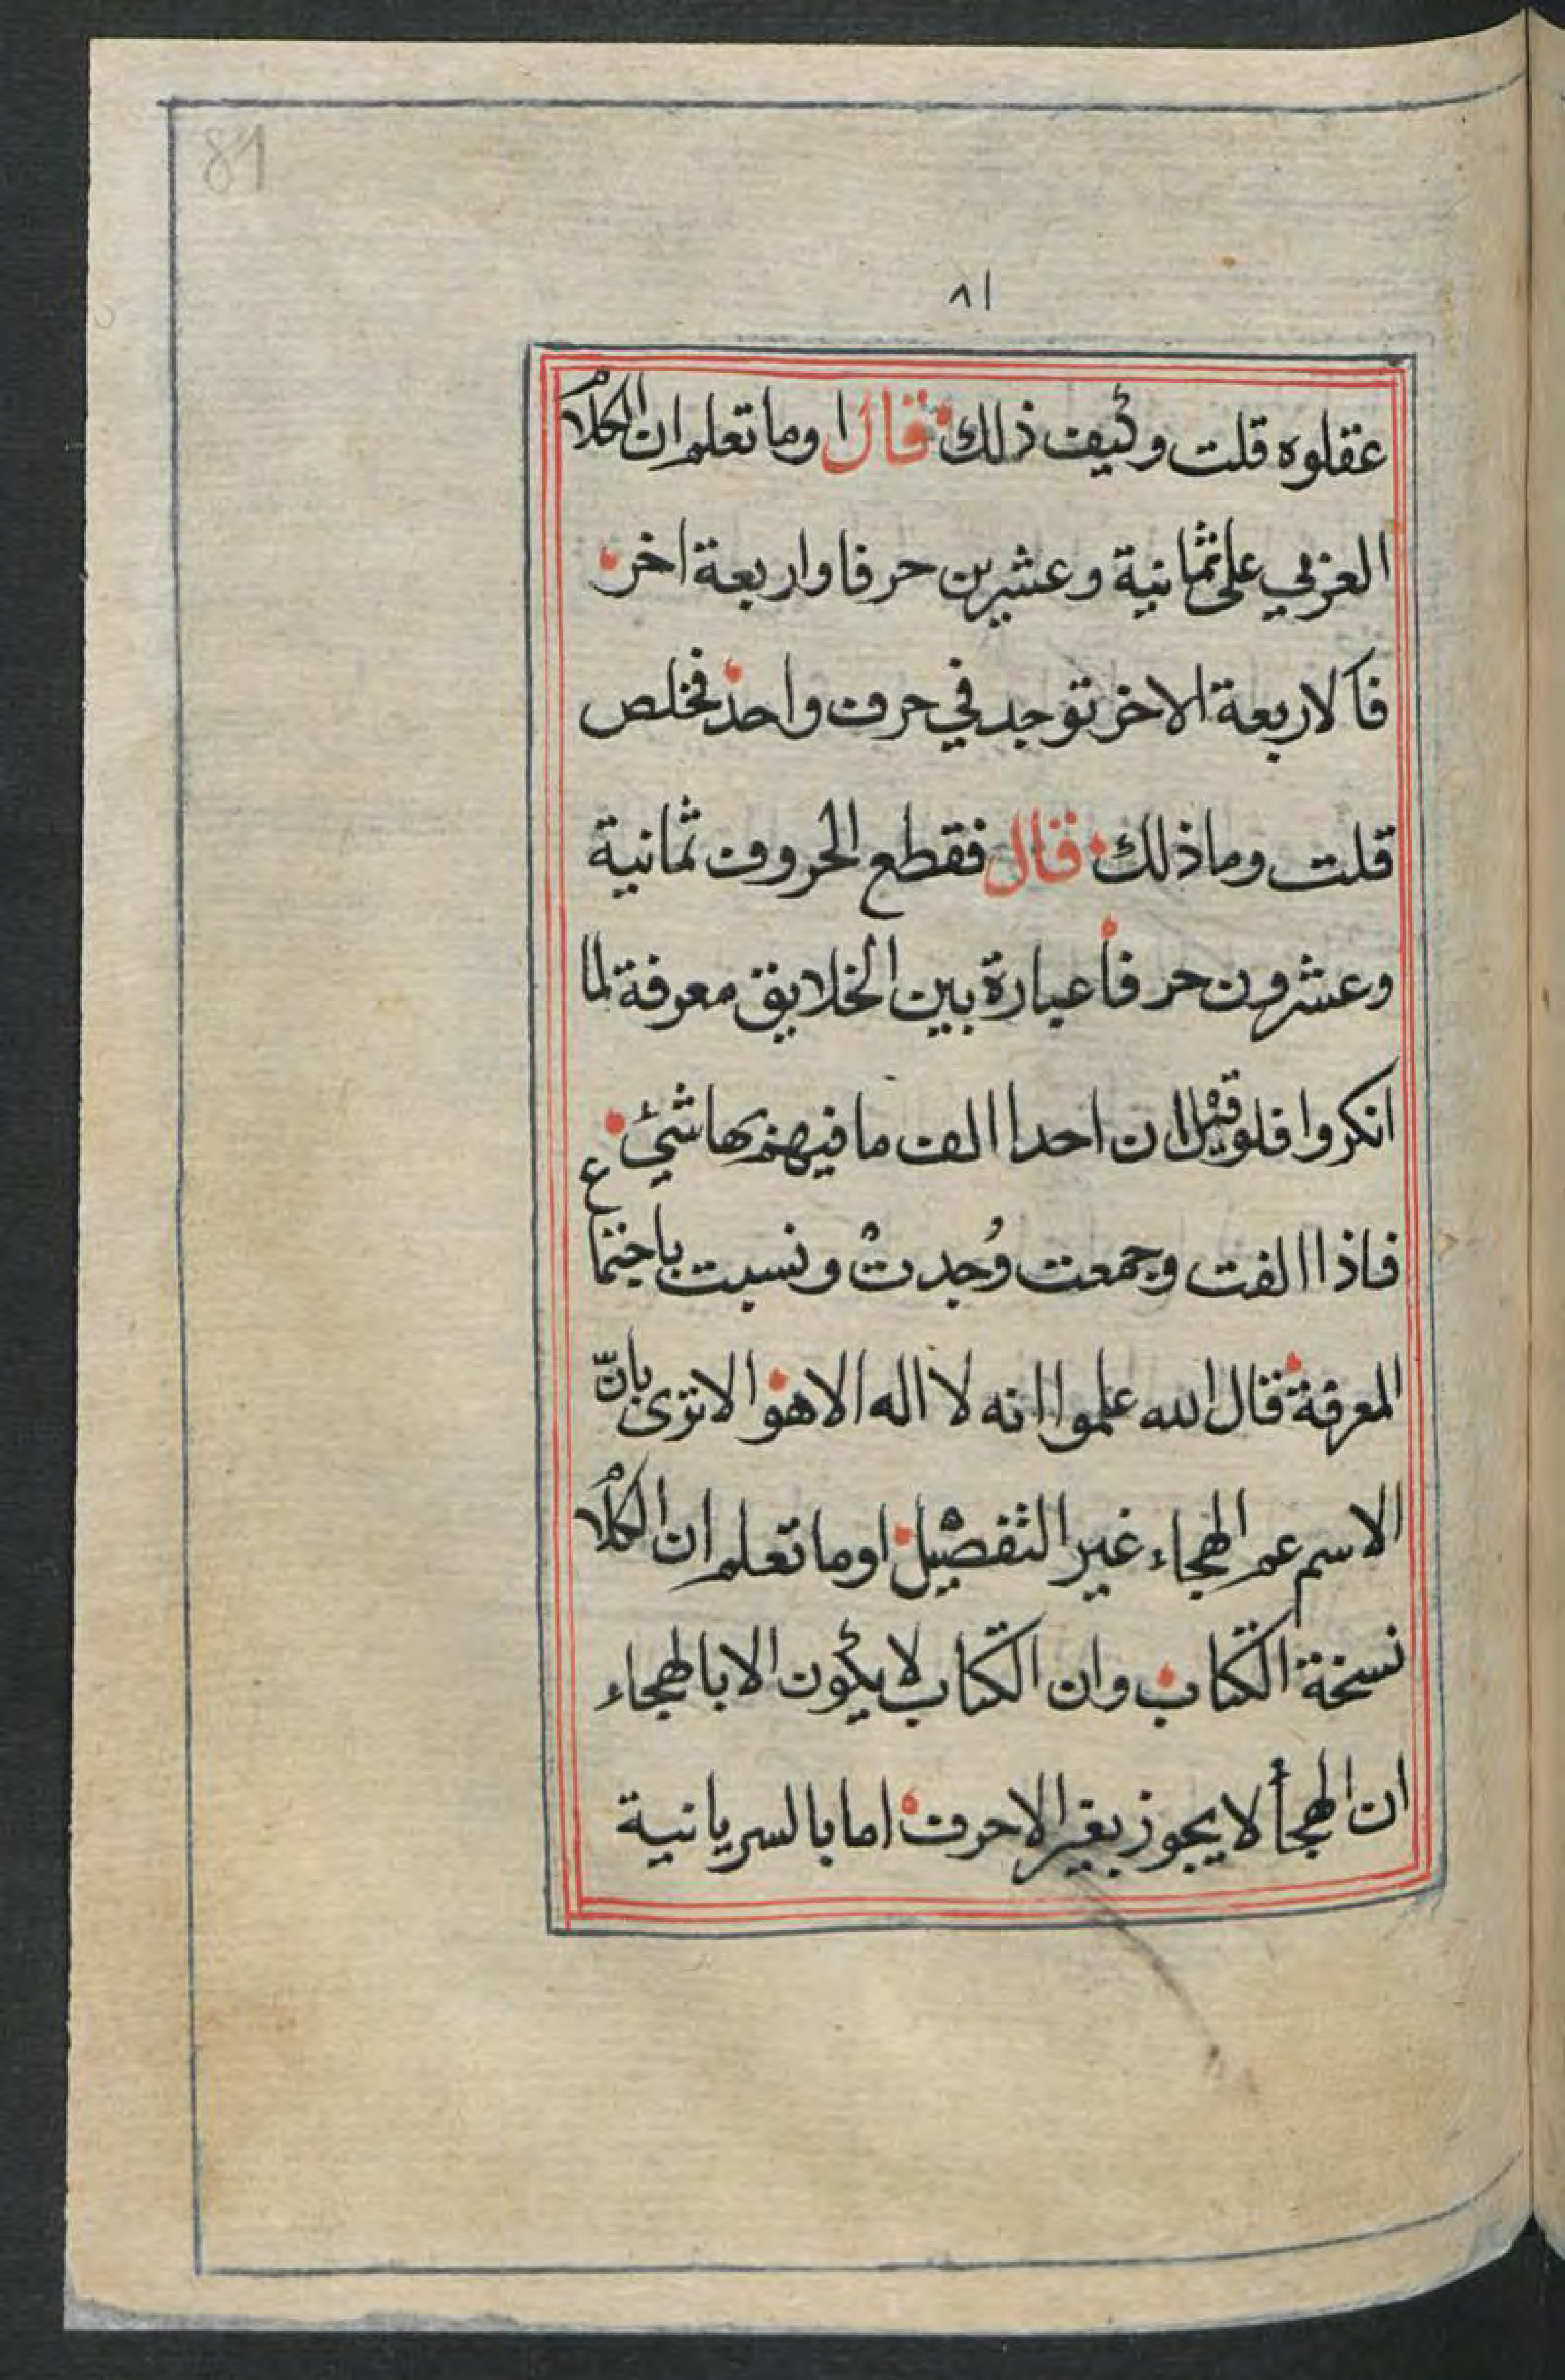 81
٨١
عقلوه قلت وكيف ذلك قال اوما تعلم ان الكلام
العربي على ثمانية وعشرين حرفا واربعة اخر
فالاربعة الاخر توجد في حرف واحد فخلص
قلت وما ذلك قال فقطع الحروف ثمانية
وعشرون حرفاً عبارة بين الخلايق معرفة لما
انكروا فلو قيل ان احدا الف ما فيهم بها شئ
فاذا الفت وجمعت وُجدتْ ونسبت باجتماع
المعرفة قال الله علموا انه لا اله الا هو الا ترى بانّ
الاسم عم الهجاء غير التفصيل اوما تعلم ان الكلام
نسخة الكتاب وان الكتاب لا يكون الا بالهجاء
ان الهجأ لا يجوز بغير الاحرف اما بالسريانية